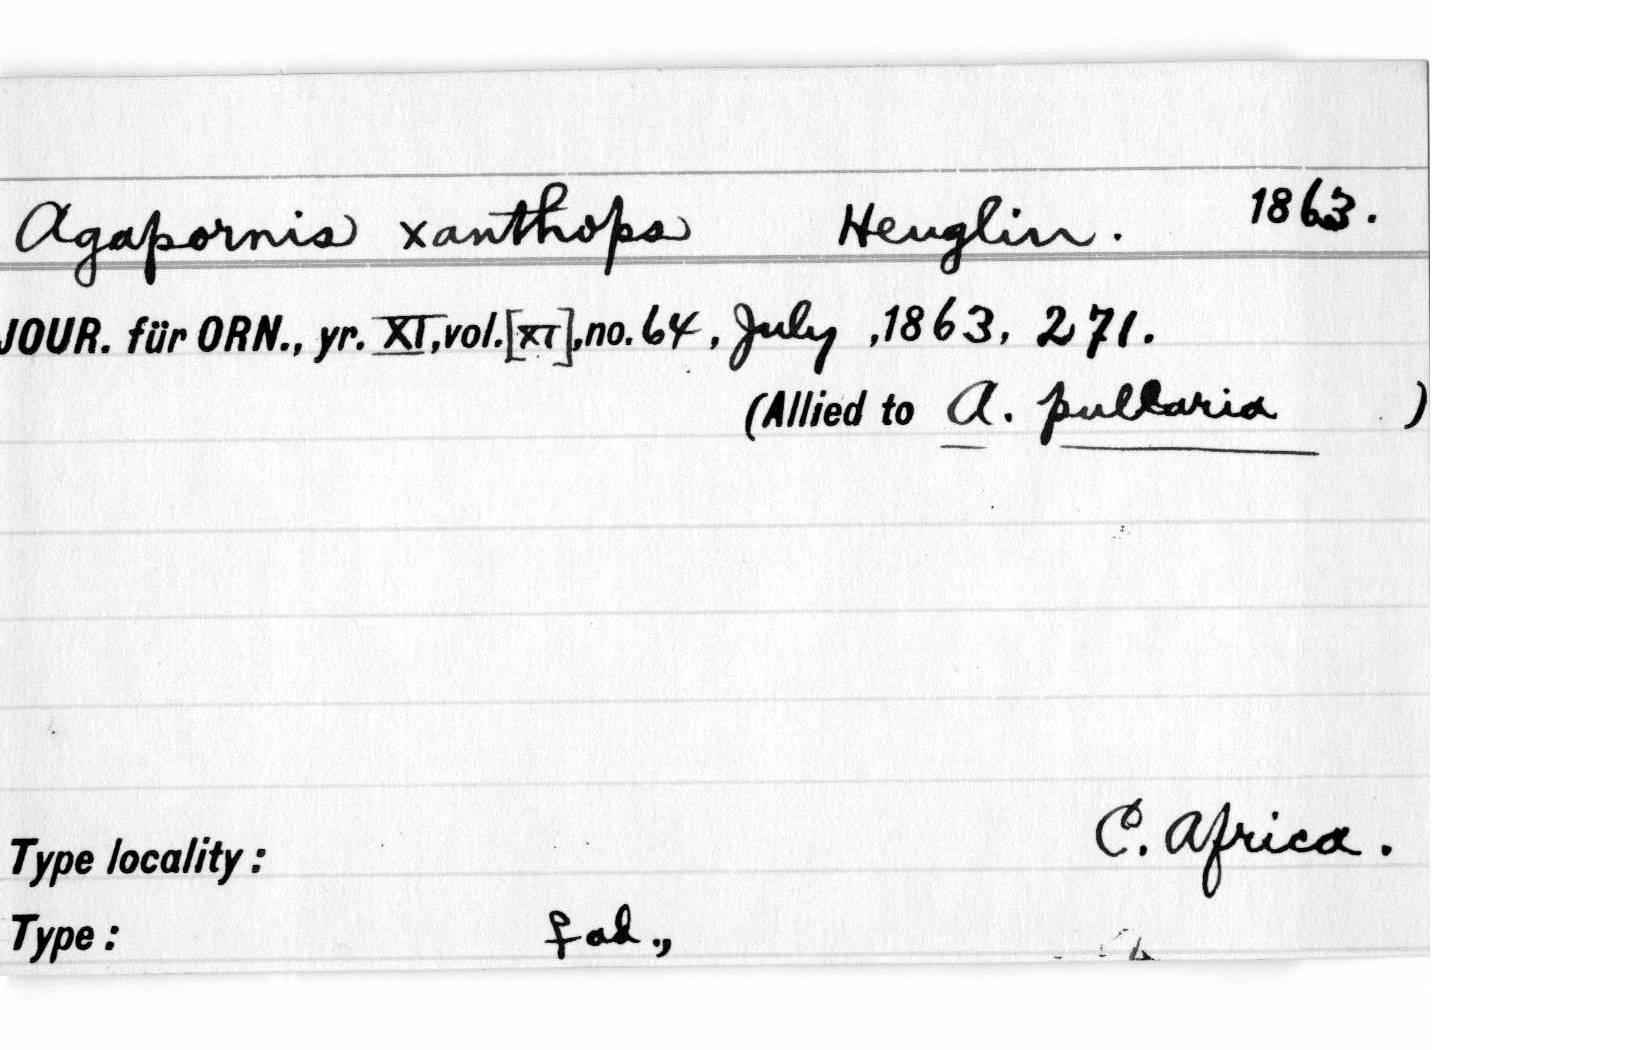 Agapornis xanthops Heuglin. 1863.
JOUR. für ORN., yr. XI, vol. [XI], no. 64, July, 1863, 271.
(Allied to A. pullaria )
Type locality: C. Africa.
Type: ♀ ad.,